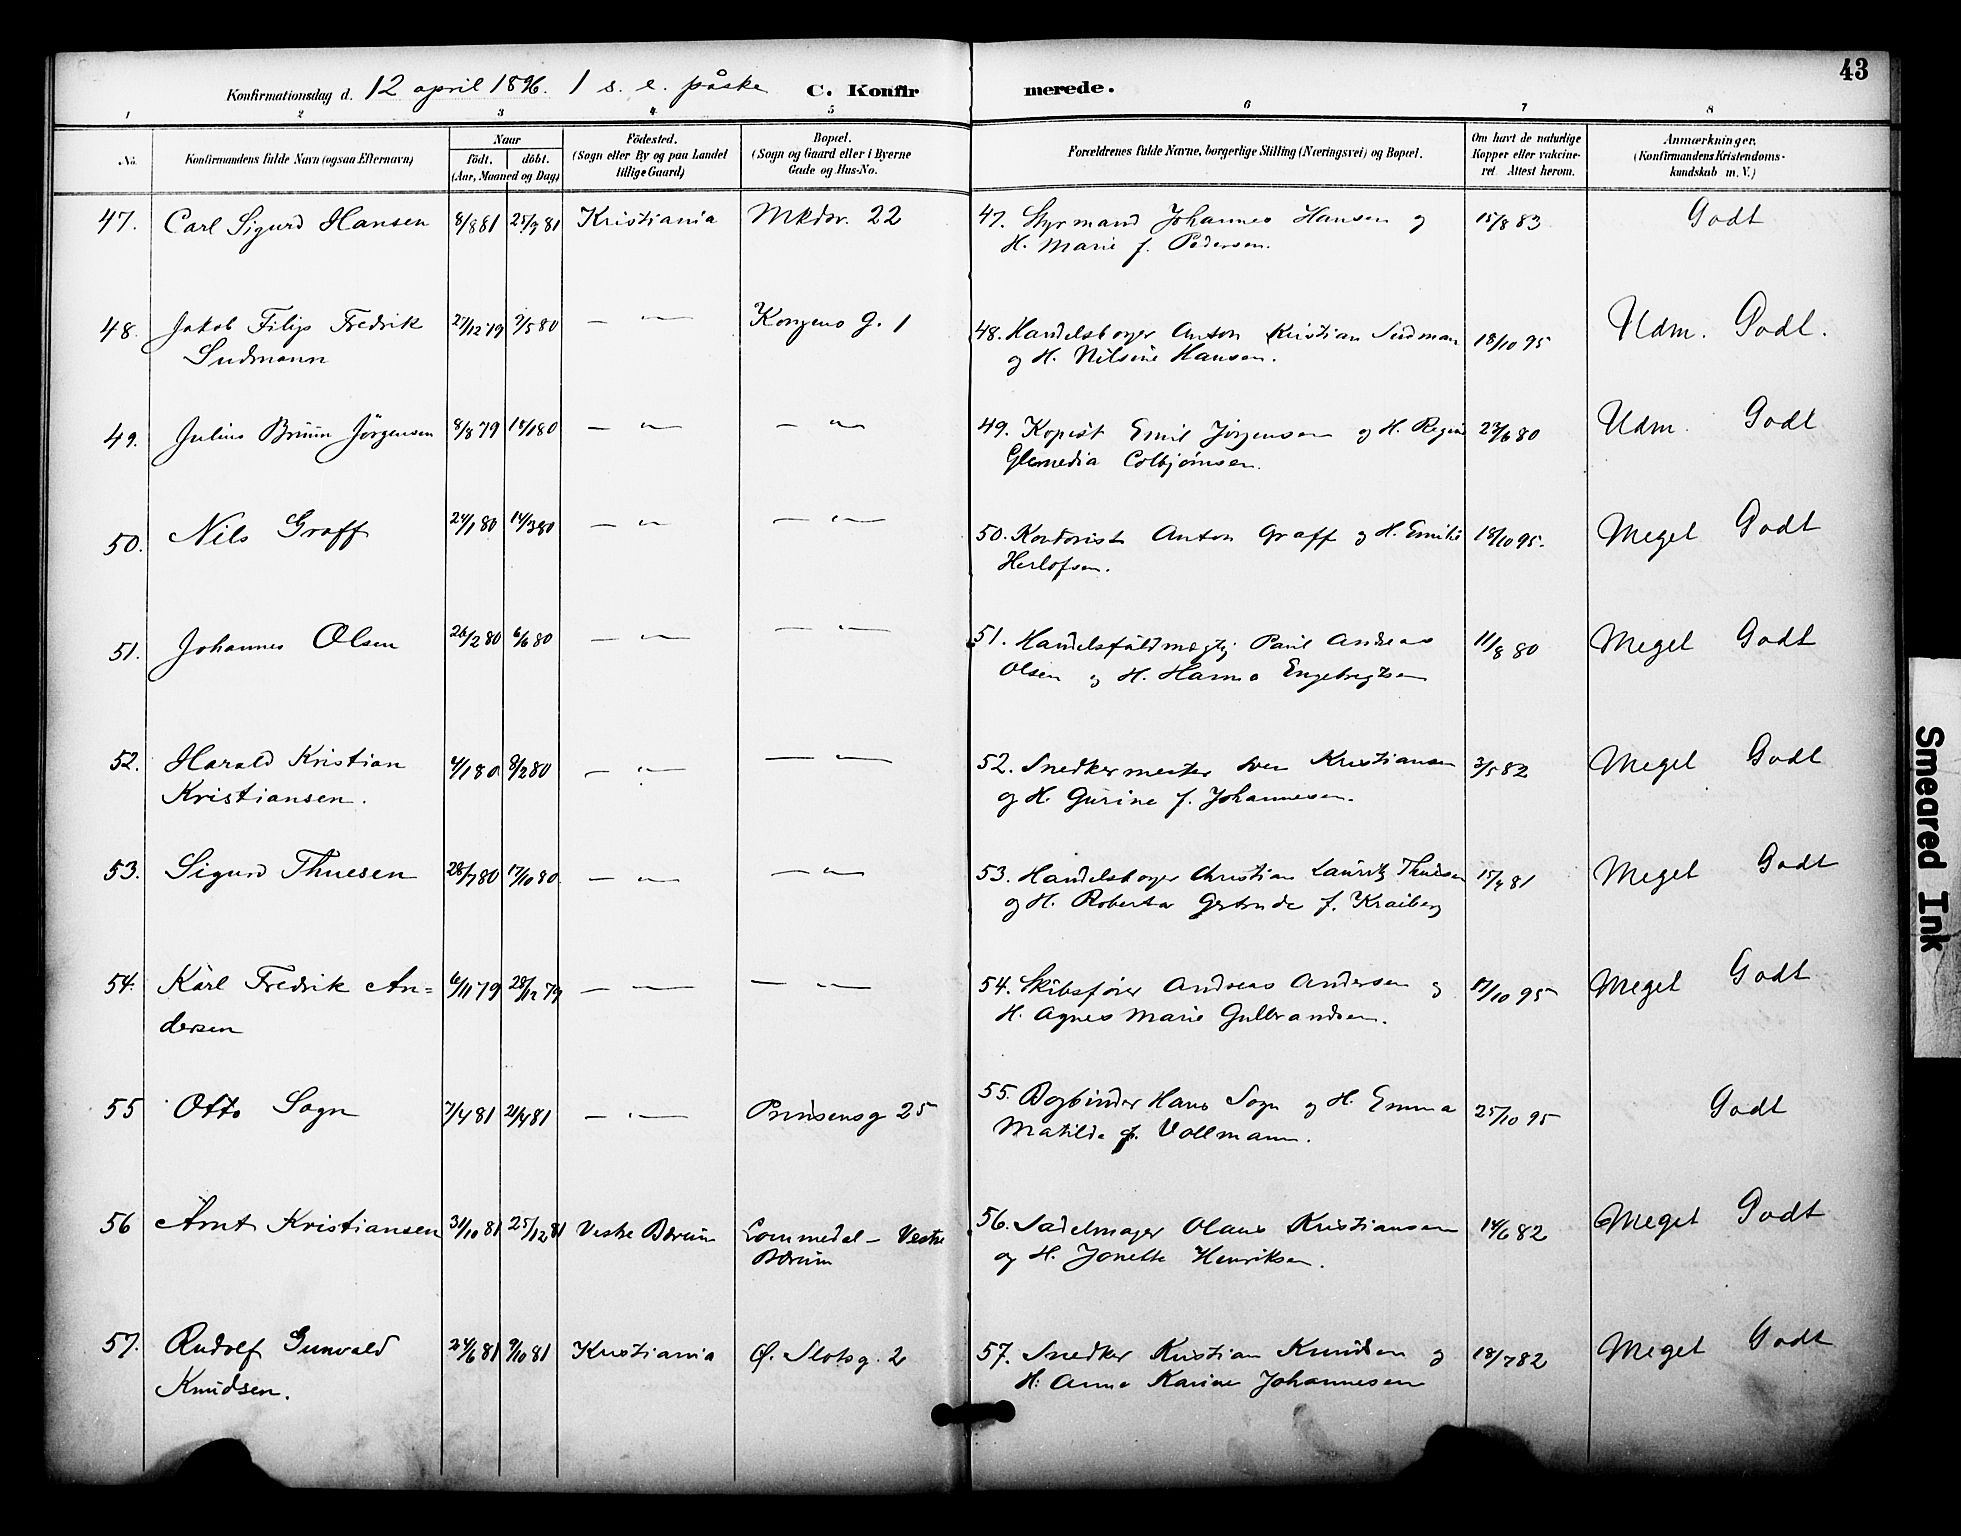 43
Konfirmationsdag d. 12 april 1896. 1 s. e. påske C. Konfirmerede.
1 2 3 4 5 6 7 8
No. Konfirmandens fulde Navn (ogsaa Efternavn) Naar födt. döbt. (Aar, Maaned og Dag) Födested. (Sogn eller By og paa Landet tillige Gaard) Bopæl. (Sogn og Gaard eller i Byerne Gade og Hus-No. Forældrenes fulde Navne, borgerlige Stilling (Næringsvei) og Bopæl. Om havt de naturlige Kopper eller vakcineret. Attest herom. Anmærkninger. (Konfirmandens Kristendomskundskab m. V.)
47. Carl Sigurd Hansen 8/8 81 25/9 81 Kristiania Mkdsv. 22 47. Styrmand Johannes Hansen og 15/8 83 Godt
H. Marie f. Pedersen.
48. Jakob Filip Fredrik 27/12 79 9/5 80 — " — Kongens g. 1 48. Handelsborger Anton Kristian Sudmann 18/10 95 Udm. Godt.
Sudmann og H. Nilsine Hansen.
49. Julius Bruun Jörgensen 8/8 79 18/1 80 — " — — " — 49. Kopist Emil Jörgensen og H. Regine 23/6 80 Udm. Godt
Colbjörnsen.
50. Nils Graff 24/1 80 14/3 80 — " — — " — 50. Kontorist Anton Graff og H. Emilie 18/10 95. Meget Godt
Herlofsen.
51. Johannes Olsen 26/2 80 6/6 80 — " — — " — 51. Handelsfuldmægtig Paul Andreas 11/8 80 Meget Godt
Olsen og H. Hanna Engebregtsen
52. Harald Kristian 4/1 80 8/2 80 — " — — " — 52. Snedkermester Sven Kristiansen 3/5 82 Meget Godt
Kristiansen. og H. Gurine f. Johannesen.
53. Sigurd Thuesen 28/7 80 17/10 80. — " — — " — 53. Handelsborger Christian Lauritz Thuesen 15/9 81 Meget Godt
og H. Roberta Gertrude f. Kraiberg
54. Karl Fredrik An= 6/11 79 28/12 79 — " — — " — 54. Skibsfører Andreas Andersen og 17/10 95 Meget Godt
dersen H. Agnes Marie Gulbrandsen.
55 Otto Sogn 7/4 81 21/4 81 — " — Prinsensg 25 55. Bogbinder Hans Sogn og H. Emma 25/10 95 Godt
Matilde f. Vollmann.
56 Arnt Kristiansen 31/10 81 25/12 81 Vestre Bærum Lommedal — Vestre 56. Sadelmager Olaus Kristiansen 14/6 82 Meget Godt
Bærum og H. Jonette Henriksen.
57. Rudolf Gunvald 24/6 81 9/10 81 Kristiania Ø. Slotsg. 2 57. Snedker Kristian Knudsen og 18/7 82 Meget Godt
Knudsen. H: Anna Karine Johannesen
Smeared Ink